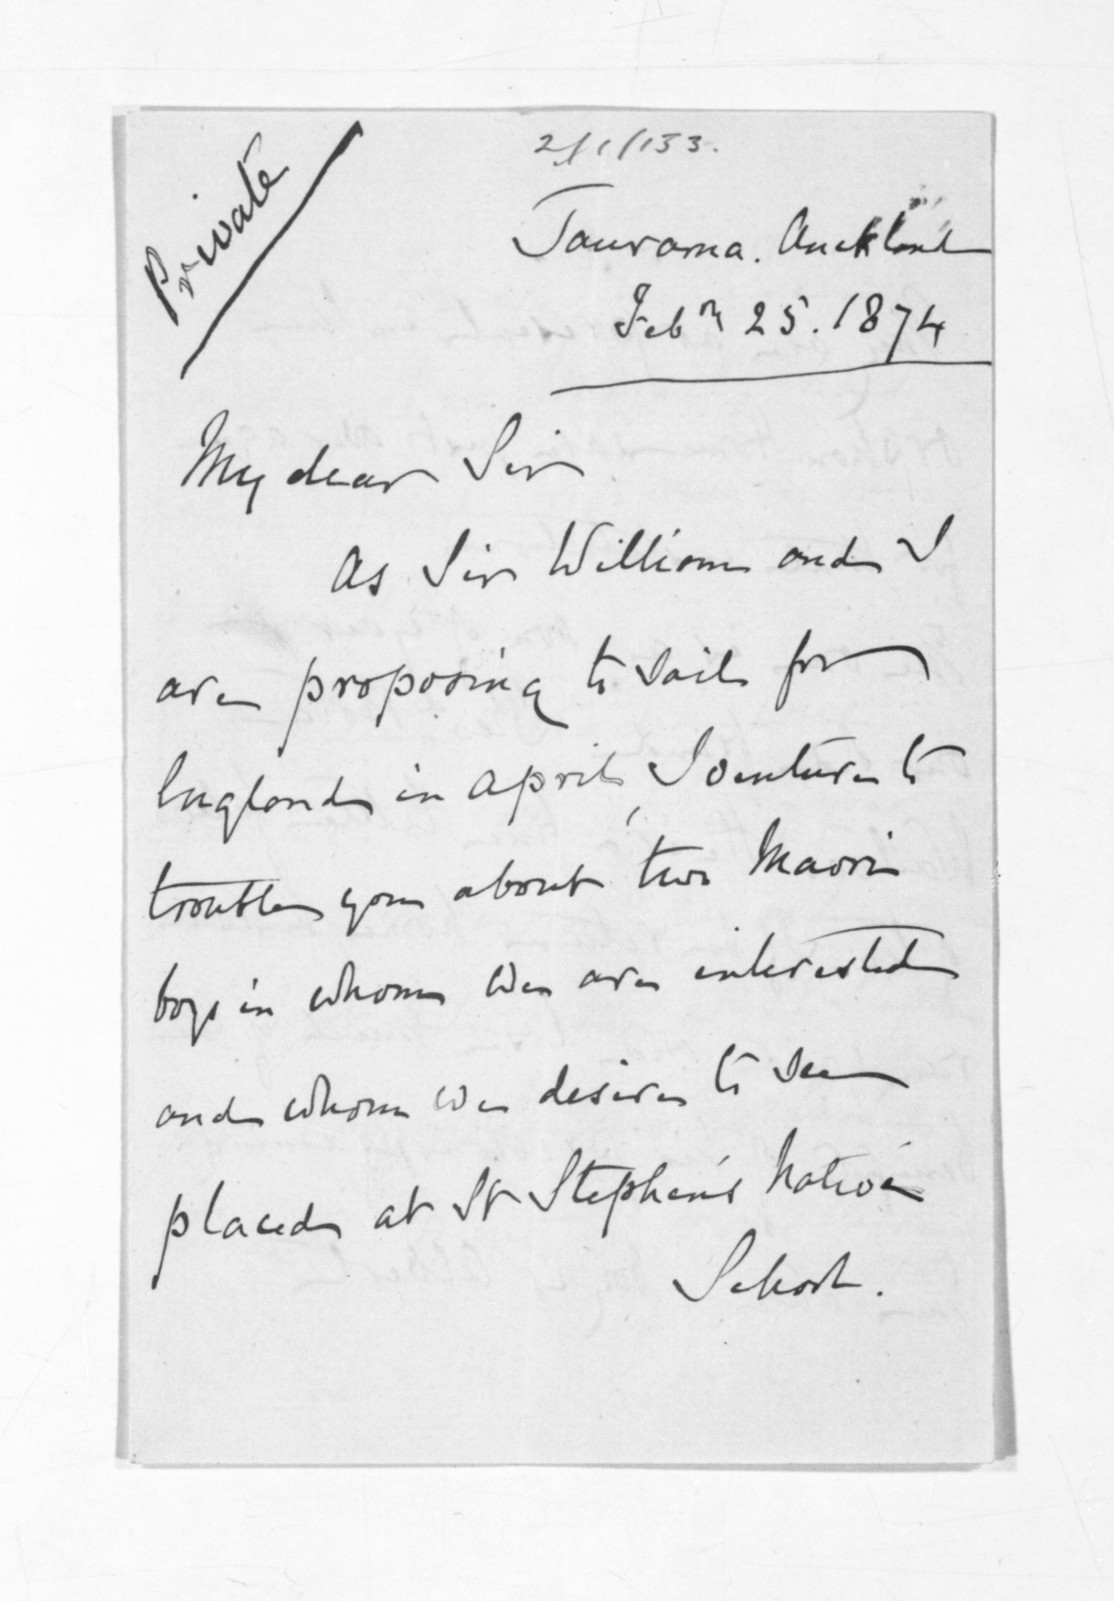 Private
2/1/133.
Taurama. Auckland
Feby 25. 1874
My dear Sir
As Sir William and I
are proposing to sail for
England in April, I venture to
trouble you about two Maori
boys in whom we are interested
and whom we desire to see
placed at St Stephen's Native
School.